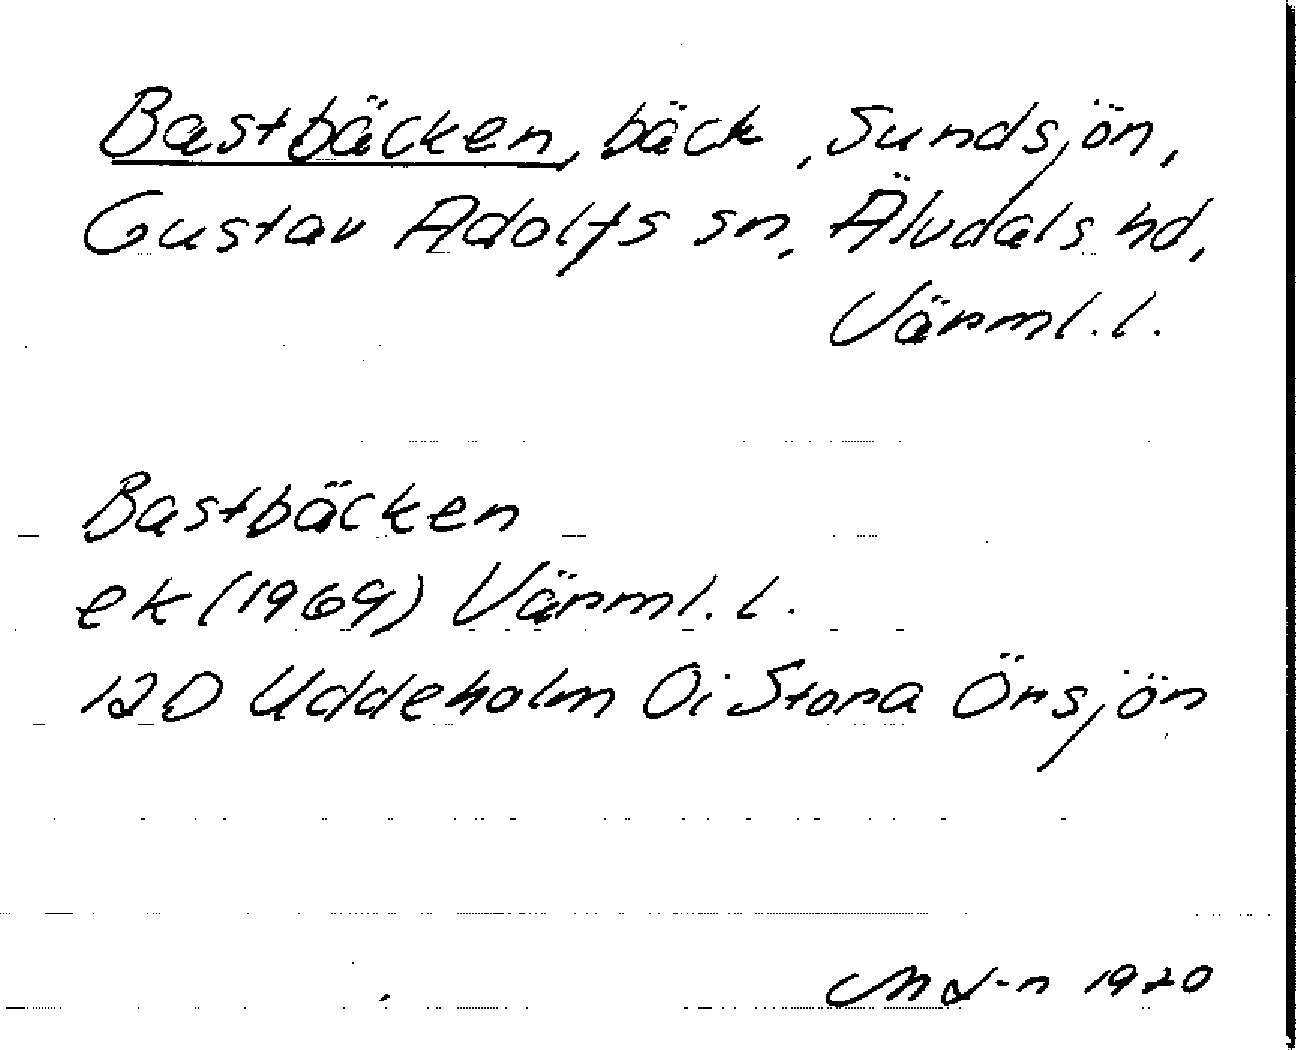 Bastbäcken, bäck, Sundsjön,
Gustav Adolfs sn, Älvdals hd,
Värml. l.
Bastbäcken
ek (1969) Värml. l.
12D Uddeholm 0i Stora Örsjön
1920